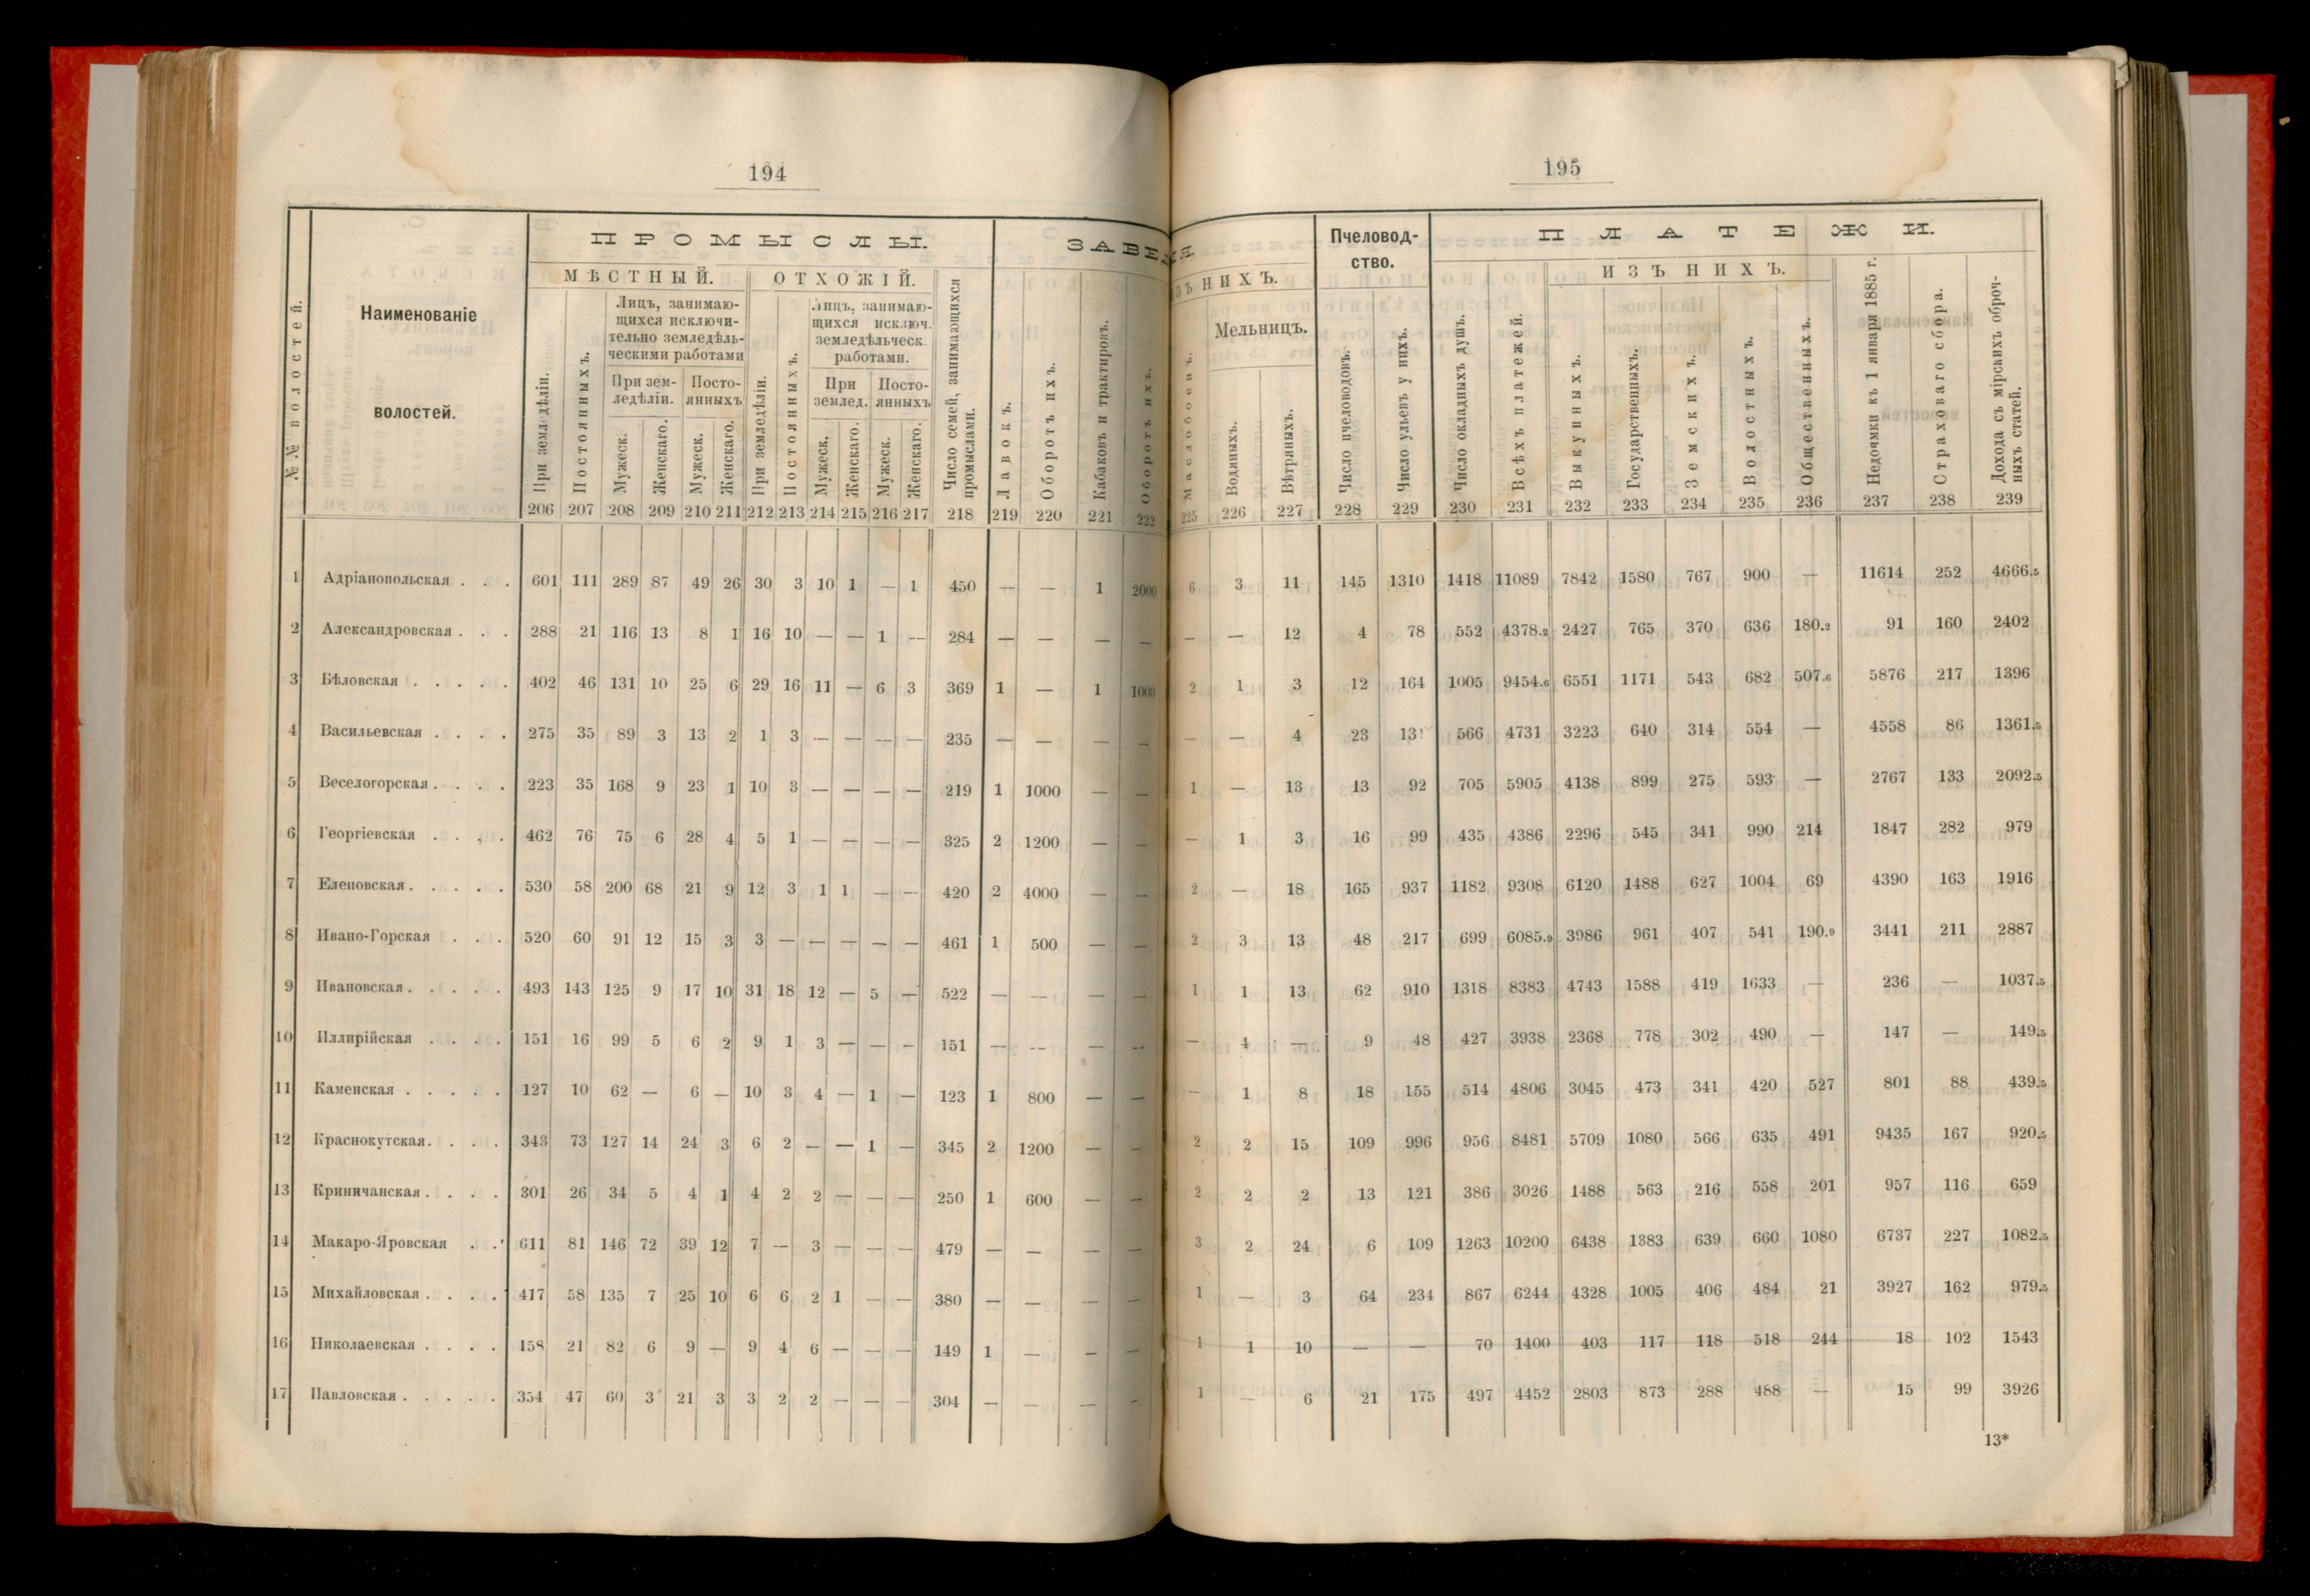 194
№№ волостей.
Наименованіе
волостей.
ПРОМЫСЛЫ.
МѢСТНЫЙ.
ОТХОЖІЙ.
При земледѣліи.
Постоянныхъ.
Лицъ, занимаю-
щихся исключи-
тельно земледѣль-
ческими работами
При зем-
ледѣліи.
Посто-
янныхъ
Мужеск.
Женскаго.
Мужеск.
Женскаго.
При земледѣліи.
Постоянныхъ.
Лицъ, занимаю-
щихся исключ.
земледѣльческ.
работами.
При
землед.
Посто-
янныхъ
Мужеск.
Женскаго.
Мужеск.
Женскаго.
Число семей, занимающихся
промыслами.
ЗАВЕ
Лавокъ.
Оборотъ ихъ.
Кабаковъ и трактировъ.
Оборотъ ихъ.
206 207 208 209 210 211 212 213 214 215 216 217 218 219 220 221 222
1 Адріанопольская . . . 601 111 289 87 49 26 30 3 10 1 — 1 450 — — 1 2000
2 Александровская . . . 288 21 116 13 8 1 16 10 — — 1 — 284 — — — —
3 Бѣловская . . . . . 402 46 131 10 25 6 29 16 11 — 6 3 369 1 — 1 1000
4 Васильевская . . . . 275 35 89 3 13 2 1 3 — — — — 235 — — — —
5 Веселогорская . . . . 223 35 168 9 23 1 10 3 — — — — 219 1 1000 — —
6 Георгіевская . . . . 462 76 75 6 28 4 5 1 — — — — 325 2 1200 — —
7 Еленовская . . . . . 530 58 200 68 21 9 12 3 1 1 — — 420 2 4000 — —
8 Ивано-Горская . . . 520 60 91 12 15 3 3 — — — — — 461 1 500 — —
9 Ивановская . . . . . 493 143 125 9 17 10 31 18 12 — 5 — 522 — — — —
10 Иллирійская . . . . 151 16 99 5 6 2 9 1 3 — — — 151 — — — —
11 Каменская . . . . . 127 10 62 — 6 — 10 3 4 — 1 — 123 1 800 — —
12 Краснокутская . . . . 343 73 127 14 24 3 6 2 — — 1 — 345 2 1200 — —
13 Криничанская . . . . 301 26 34 5 4 1 4 2 2 — — — 250 1 600 — —
14 Макаро-Яровская . . 611 81 146 72 39 12 7 — 3 — — — 479 — — — —
15 Михайловская . . . . 417 58 135 7 25 10 6 6 2 1 — — 380 — — — —
16 Николаевская . . . . 158 21 82 6 9 — 9 4 6 — — — 149 1 — — —
17 Павловская . . . . . 354 47 60 3 21 3 3 2 2 — — — 304 — — — —
195
НИХЪ.
Маслобоенъ.
Мельницъ.
Водяныхъ.
Вѣтряныхъ.
Пчеловод-
ство.
Число пчеловодовъ.
Число ульевъ у нихъ.
ПЛАТЕЖИ.
Число окладныхъ душъ.
Всѣхъ платежей.
ИЗЪ НИХЪ.
Выкупныхъ.
Государственныхъ.
Земскихъ.
Волостныхъ.
Общественныхъ.
Недоимки къ 1 января 1885 г.
Страховаго сбора.
Дохода съ мірскихъ оброч-
ныхъ статей.
225 226 227 228 229 230 231 232 233 234 235 236 237 238 239
6 3 11 145 1310 1418 11089 7842 1580 767 900 — 11614 252 4666.5
— — 12 4 78 552 4378.2 2427 765 370 636 180.2 91 160 2402
2 1 3 12 164 1005 9454.6 6551 1171 543 682 507.6 5876 217 1396
— — 4 23 131 566 4731 3223 640 314 554 — 4558 86 1361.5
1 — 13 13 92 705 5905 4138 899 275 593 — 2767 133 2092.5
— 1 3 16 99 435 4386 2296 545 341 990 214 1847 282 979
2 — 18 165 937 1182 9308 6120 1488 627 1004 69 4390 163 1916
2 3 13 48 217 699 6085.9 3986 961 407 541 190.9 3441 211 2887
1 1 13 62 910 1318 8383 4743 1588 419 1633 — 236 — 1037.5
— 4 — 9 48 427 3938 2368 778 302 490 — 147 — 149.5
— 1 8 18 155 514 4806 3045 473 341 420 527 801 88 439.5
2 2 15 109 996 956 8481 5709 1080 566 635 491 9435 167 920.5
2 2 2 13 121 386 3026 1488 563 216 558 201 957 116 659
3 2 24 6 109 1263 10200 6438 1383 639 660 1080 6737 227 1082.5
1 — 3 64 234 867 6244 4328 1005 406 484 21 3927 162 979.5
1 1 10 — — 70 1400 403 117 118 518 244 18 102 1543
1 — 6 21 175 497 4452 2803 873 288 488 — 15 99 3926
13*